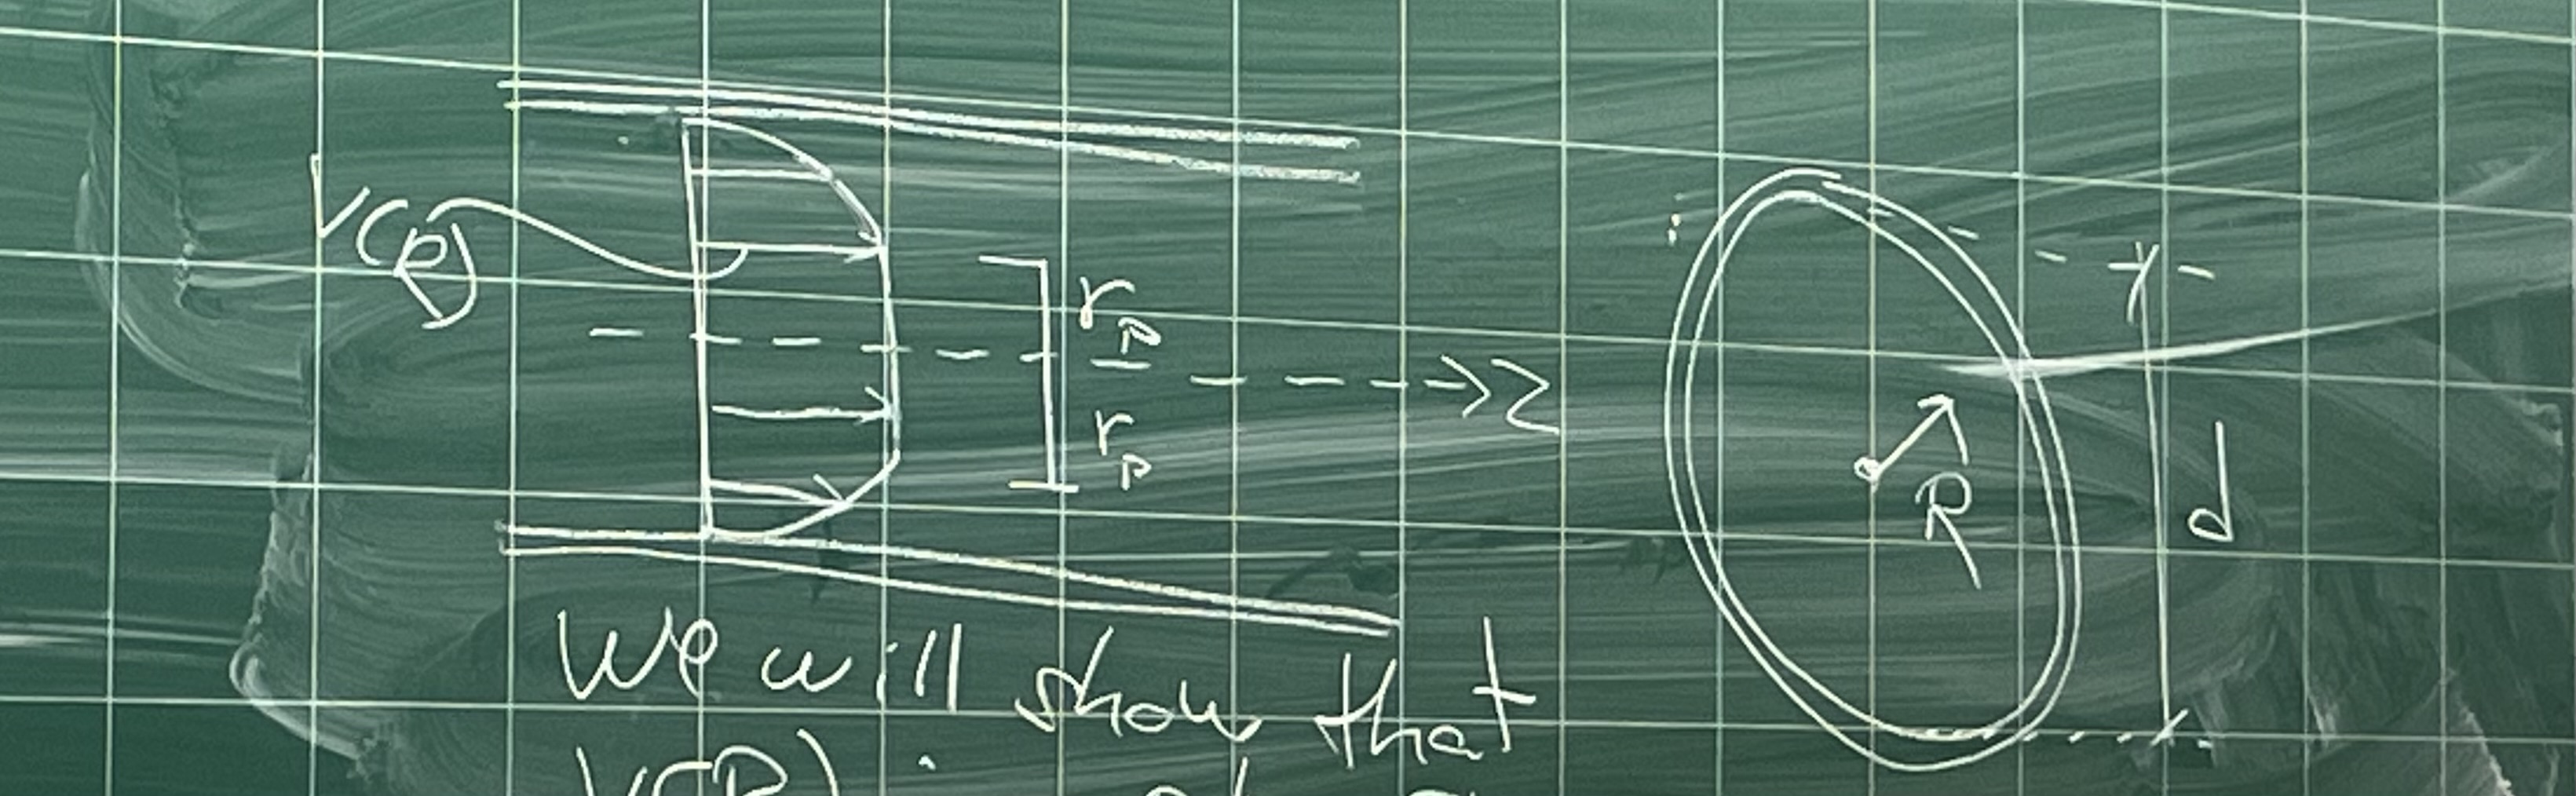 V(R)
r_p
r_p
z
R
d
We will show that
V(R)